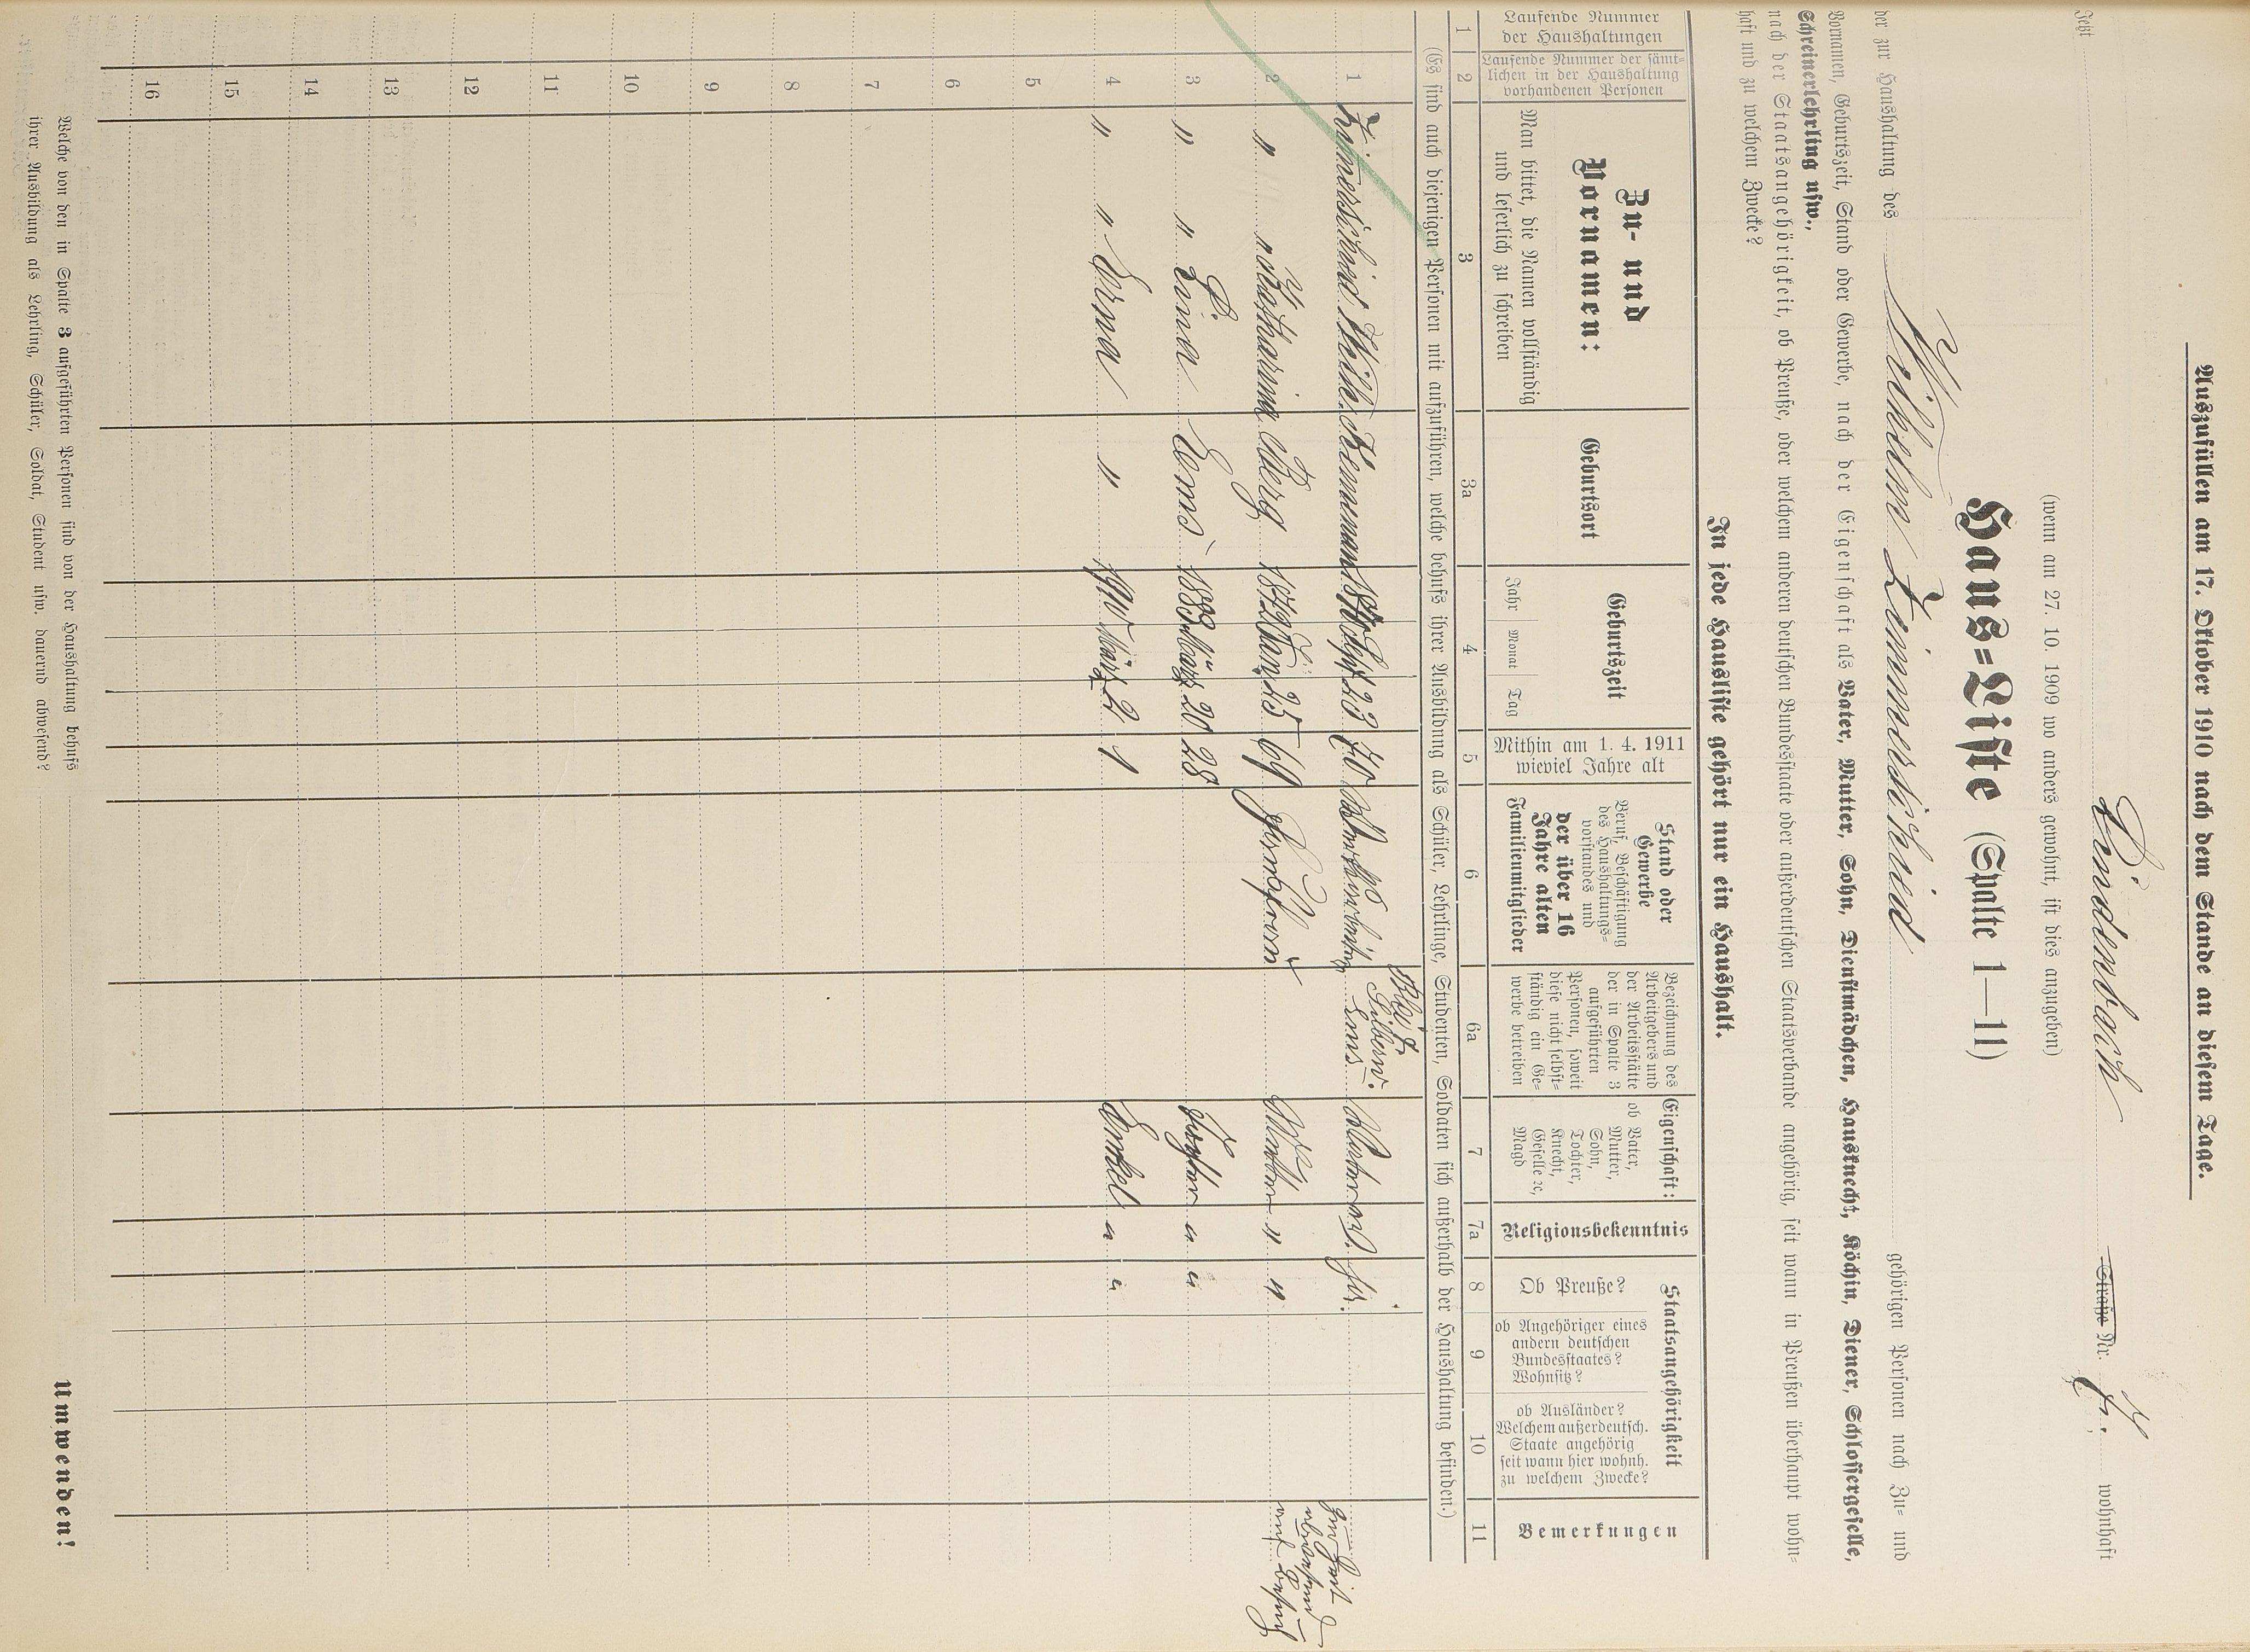 Auszufüllen am 17. Oktober 1910 nach dem Stande an diesem Tage.
Jetzt Lindenbach Straße Nr. wohnhaft
(wenn am 27. 10. 1909 wo anders gewohnt, ist dies anzugeben)
Haus=Liste (Spalte 1—11)
der zur Haushaltung des Wilhelm Zimmerschied gehörigen Personen nach Zu= und
Vornamen, Geburtszeit, Stand oder Gewerbe, nach der Eigenschaft als Vater, Mutter, Sohn, Dienstmädchen, Hausknecht, Köchin, Diener, Schlossergeselle,
Schreinerlehrling usw.,
nach der Staatsangehörigkeit, ob Preuße, oder welchem anderen deutschen Bundesstaate oder außerdeutschen Staatsverbande angehörig, seit wann in Preußen überhaupt wohn=
haft und zu welchem Zwecke?
In jede Hausliste gehört nur ein Haushalt.
Laufende Nummer
der Haushaltungen
Laufende Nummer der sämt=
lichen in der Haushaltung
vorhandenen Personen
Zu- und
Vornamen:
Man bittet, die Namen vollständig
und leserlich zu schreiben
Geburtsort
Geburtszeit
Jahr Monat Tag
Mithin am 1. 4. 1911
wieviel Jahre alt
Stand oder
Gewerbe
Beruf, Beschäftigung
des Haushaltungs=
vorstandes und
der über 16
Jahre alten
Familienmitglieder
Bezeichnung des
Arbeitgebers und
der Arbeitsstätte
der in Spalte 3
aufgeführten
Personen, soweit
diese nicht selbst=
ständig ein Ge=
werbe betreiben
Eigenschaft:
ob Vater,
Mutter,
Sohn,
Tochter,
Knecht,
Geselle ec,
Magd
Religionsbekenntnis
Staatsangehörigkeit
Ob Preuße?
ob Angehöriger eines
andern deutschen
Bundesstaates?
Wohnsitz?
ob Ausländer?
Welchem außerdeutsch.
Staate angehörig
seit wann hier wohnh.
zu welchem Zwecke?
Bemerkungen
1 2 3 3a 4 5 6 6a 7 7a 8 9 10 11
(Es sind auch diejenigen Personen mit aufzuführen, welche behufs ihrer Ausbildung als Schüler, Lehrlinge, Studenten, Soldaten sich außerhalb der Haushaltung befinden.)
Blei &
Silberw.
1 Zimerschied Wilh. Kemmenau Sept 23 70 Ems Vater evgl. ja.
zur Zeit
abwesend
auf Besuch
2 " " Katharina Berg 25 69 Mutter " "
3 " " Lina Ems 1883 März 20 28 Tochter " "
4 " " Erna " 1910 März 2 1 Enkel " "
5
6
7
8
9
10
11
12
13
14
15
16
Welche von den in Spalte 3 aufgeführten Personen sind von der Haushaltung behufs
ihrer Ausbildung als Lehrling, Schüler, Soldat, Student usw. dauernd abwesend?
Umwenden!